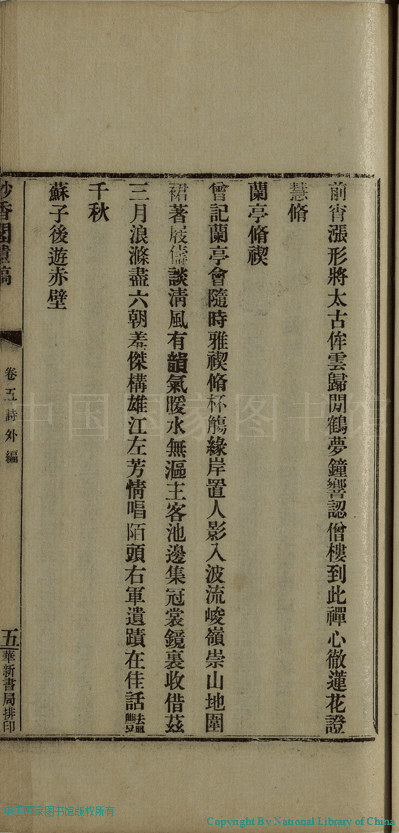 前宵漲形將太古侔雲歸閒鶴夢鐘響認僧樓到此禪心徹蓮花證
慧脩
蘭亭脩禊
曾記蘭亭會隨時雅禊脩杯觴緣岸置人影入波流峻嶺崇山地圍
裙著屐儔談清風有韻氣暖水無漚主客池邊集冠裳鏡裏收借茲
三月浪滌盡六朝羞傑構雄江左芳情唱陌頭右軍遺蹟在佳話豔
千秋
蘇子後遊赤壁
香閣遺稿
卷五詩外編
五
華新書局排印
中国国家图书馆
中国国家图书馆版权所有
Copyright By National Library of China